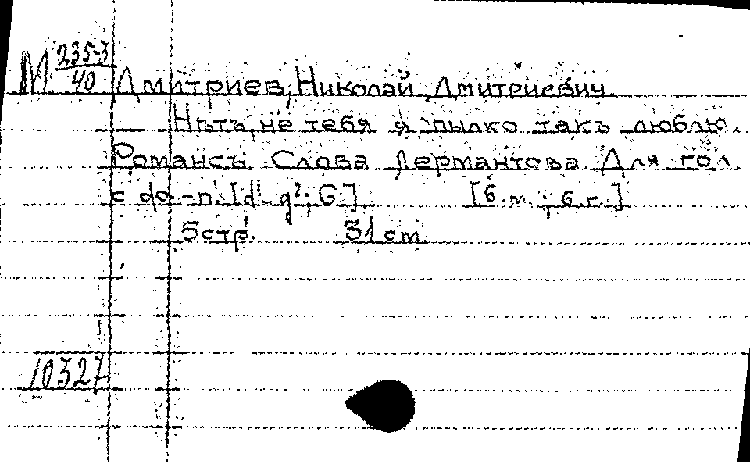 М 235-3/40 Дмитриев, Николай Дмитриевич
Нѣтъ, не тебя я пылко такъ люблю.
Романсъ. Слова Лермантова. Для гол.
с фо-п. [d¹ g²; G] [б. м.; б. г.]
5 стр. 31 cm.
10327